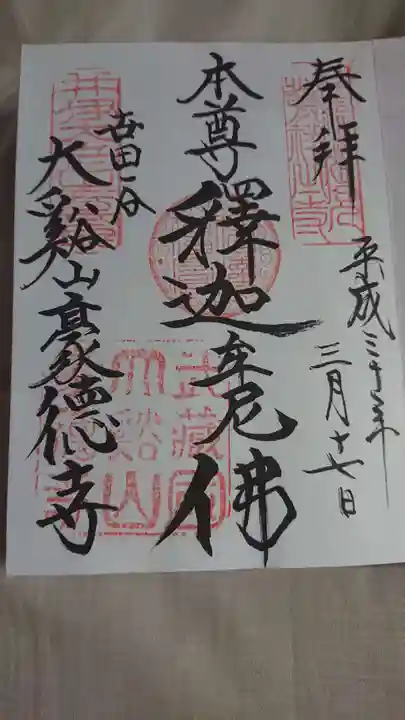 奉拝
平成三十年
三月十七日
本尊
釋迦牟尼佛
世田谷
大谿山豪德寺
武藏國
大谿山